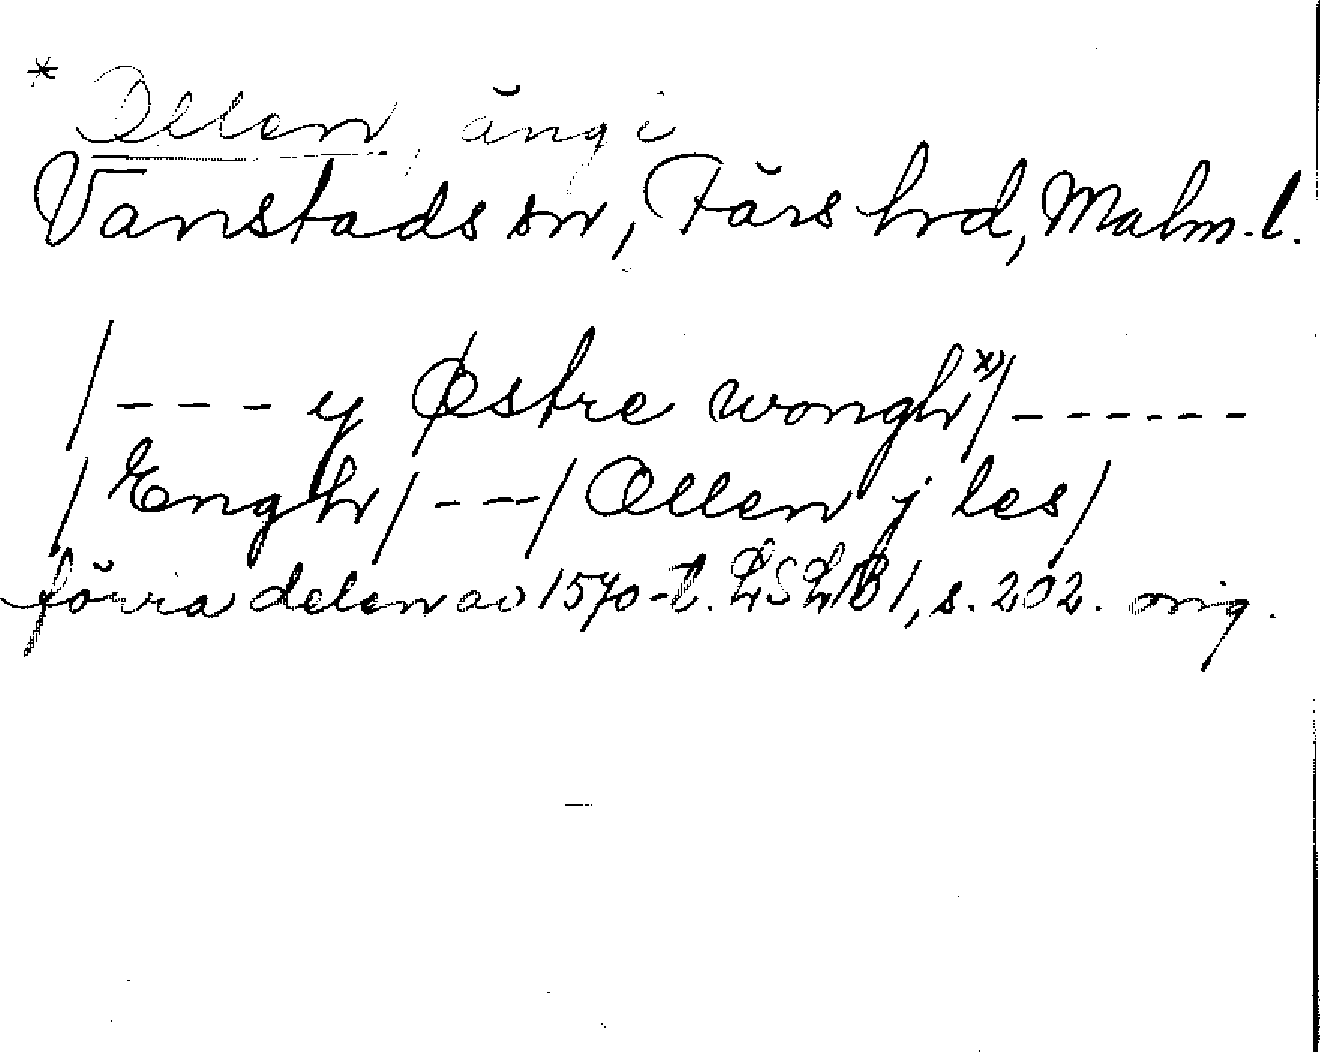 * Ollen, äng i
Vanstads sn, Färs hrd, Malm. l.
/--- y Østre wongh *)/------
/Engh/---/Ollen j les/
förra delen av 1570-t. LSLB 1, s. 202. orig.